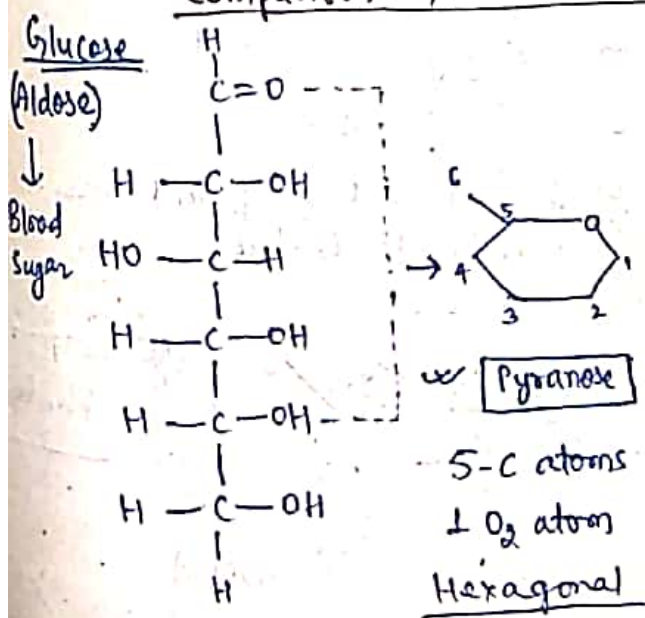 Glucose
(Aldose)
↓
Blood
Sugar
H
C=O
H—C—OH
HO—C—H
H—C—OH
H—C—OH
H—C—OH
H
→
6
5
O
4
1
3
2
Pyranose
5-C atoms
1 O2 atom
Hexagonal